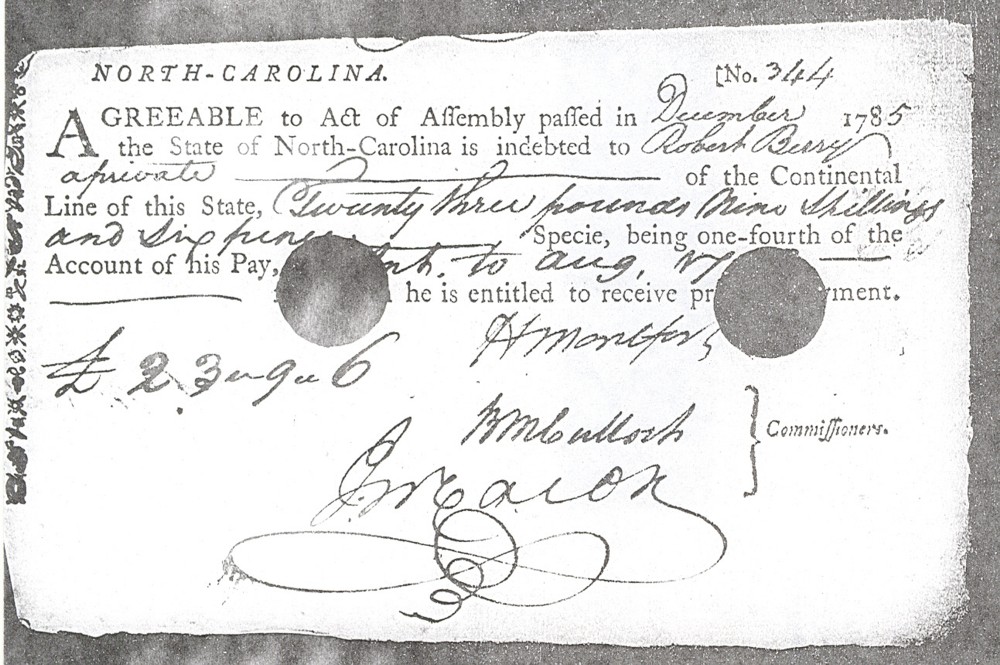 NORTH-CAROLINA. [No. 344
AGREEABLE to Act of Aſſembly paſſed in December 1785
the State of North-Carolina is indebted to Robert Berry
a private of the Continental
Line of this State, Twenty three pounds Nine Shillings
and Six pence Specie, being one-fourth of the
Account of his Pay, Int. to aug.
he is entitled to receive pr yment.
HMontfort
£ 23 " 9 " 6
BMCulloch
Commiſſioners.
JMacon